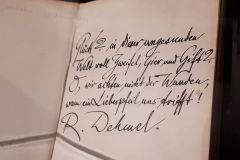 Glück? in dieser ungesunden
Welt voll Zweifel, Gier und Gift?
O, wir achten nicht der Wunden,
wenn ein Liebespfeil uns trifft!
R. Dehmel.